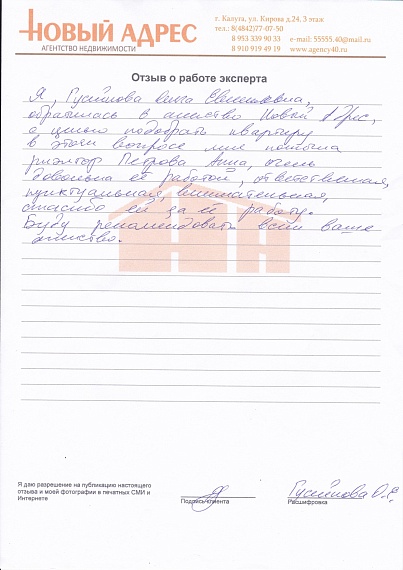 НОВЫЙ АДРЕС
АГЕНТСТВО НЕДВИЖИМОСТИ
г. Калуга, ул. Кирова д.24, 3 этаж
тел.: 8(4842)77-07-50
8 953 339 90 33 e-mail: 55555.40@mail.ru
8 910 919 49 19 www.agency40.ru
Отзыв о работе эксперта
Я Ольга Евгеньевна,
обратилась в агенство Новый Адрес,
с целью подобрать квартиру
в этом вопросе мне помогла
риэлтор Петрова Анна, очень
довольна её работой, ответственная,
пунктуальная, внимательная,
спасибо ей за её работу.
Буду рекомендовать всем ваше
агенство.
Я даю разрешение на публикацию настоящего
отзыва и моей фотографии в печатных СМИ и
Интернете
Подпись клиента
О.Е.
Расшифровка